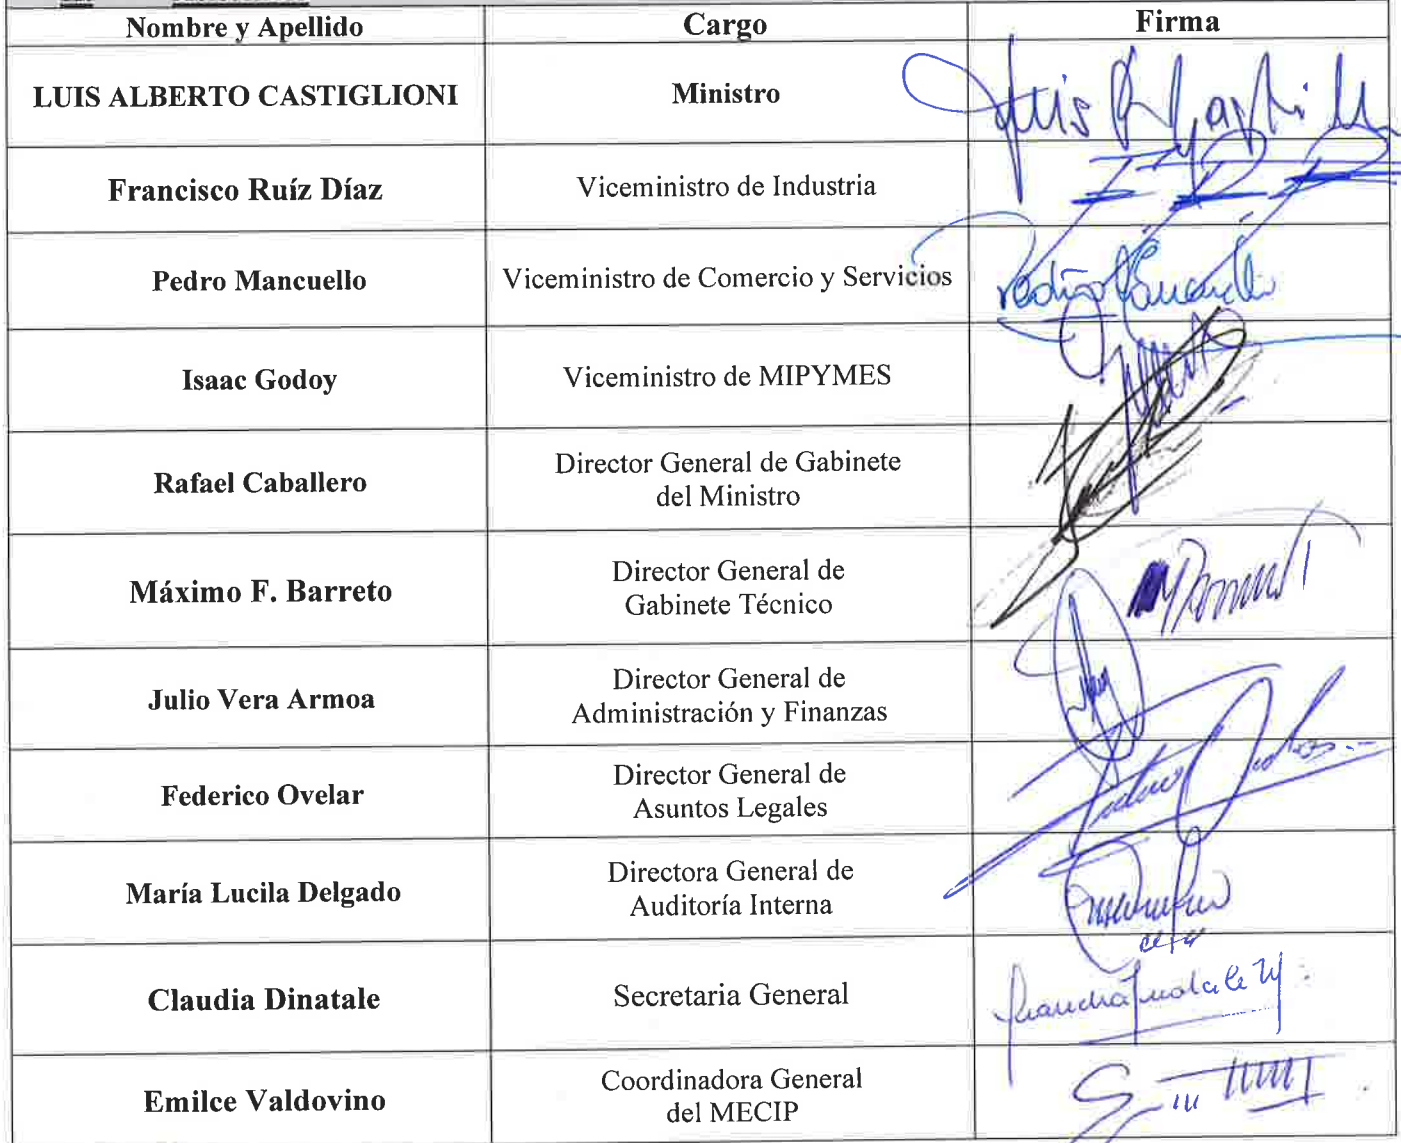 Nombre y Apellido Cargo Firma
LUIS ALBERTO CASTIGLIONI Ministro
Francisco Ruíz Díaz Viceministro de Industria
Pedro Mancuello Viceministro de Comercio y Servicios
Isaac Godoy Viceministro de MIPYMES
Rafael Caballero Director General de Gabinete
del Ministro
Máximo F. Barreto Director General de
Gabinete Técnico
Julio Vera Armoa Director General de
Administración y Finanzas
Federico Ovelar Director General de
Asuntos Legales
María Lucila Delgado Directora General de
Auditoría Interna
Claudia Dinatale Secretaria General
Emilce Valdovino Coordinadora General
del MECIP